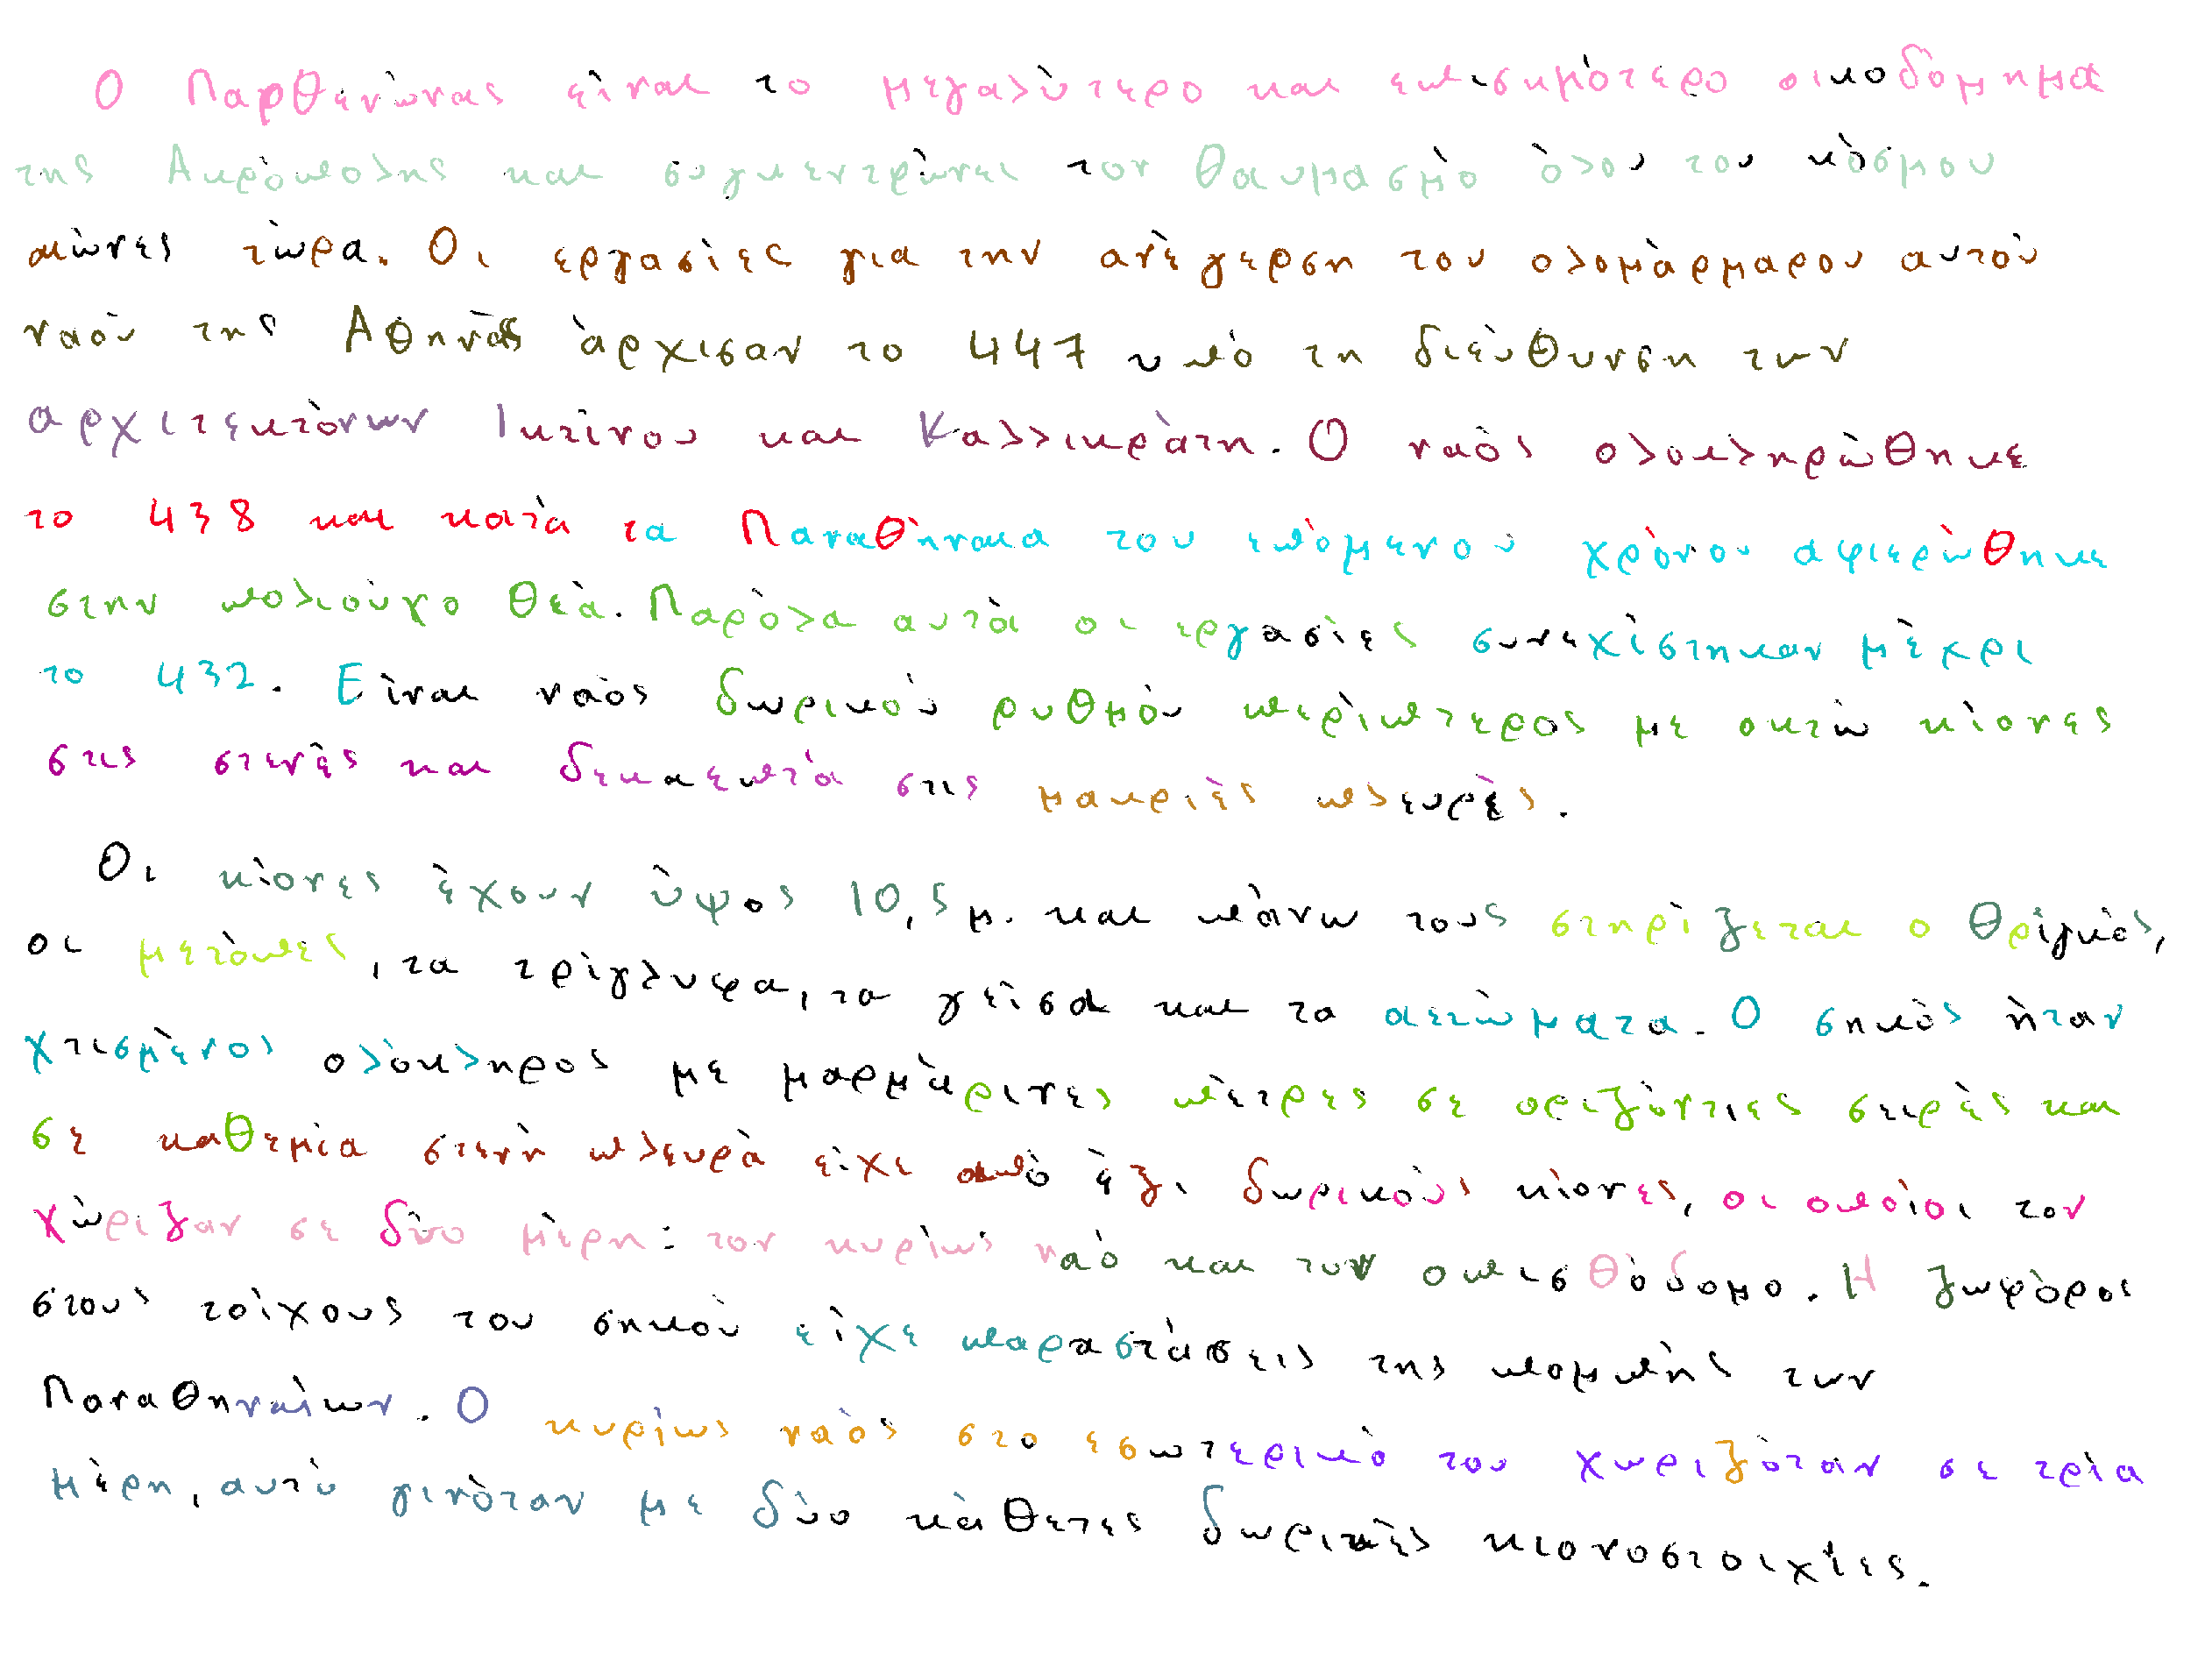 Ο Παρθενώνας είναι το μεγαλύτερο και επισημότερο οικοδόμημα
της Ακρόπολης και συγκεντρώνει τον θαυμασμό όλου του κόσμου
αιώνες τώρα. Οι εργασίες για την ανέγερση του ολομάρμαρου αυτού
ναού της Αθηνάς άρχισαν το 447 υπό τη διεύθυνση των
αρχιτεκτόνων Ικτίνου και Καλλικράτη. Ο ναός ολοκληρώθηκε
το 438 και κατά τα Παναθήναια του επόμενου χρόνου αφιερώθηκε
στην πολιούχο θεά. Παρόλα αυτά οι εργασίες συνεχίστηκαν μέχρι
το 432. Είναι ναός δωρικού ρυθμού περίπτερος με οκτώ κίονες
στις στενές και δεκαεπτά στις μακριές πλευρές.
Οι κίονες έχουν ύψος 10,5 μ. και πάνω τους στηρίζεται ο θριγκός,
οι μετόπες, τα τρίγλυφα, τα γείσα και τα αετώματα. Ο σηκός ήταν
χτισμένος ολόκληρος με μαρμάρινες πέτρες σε οριζόντιες σειρές και
σε καθεμία στενή πλευρά είχε από έξι δωρικούς κίονες, οι οποίοι τον
χώριζαν σε δύο μέρη: τον κυρίως ναό και τον οπισθόδομο. Η ζωφόρος
στους τοίχους του σηκού είχε παραστάσεις της πομπής των
Παναθηναίων. Ο κυρίως ναός στο εσωτερικό του χωριζόταν σε τρία
μέρη, αυτό γινόταν με δύο κάθετες δωρικές κιονοστοιχίες.